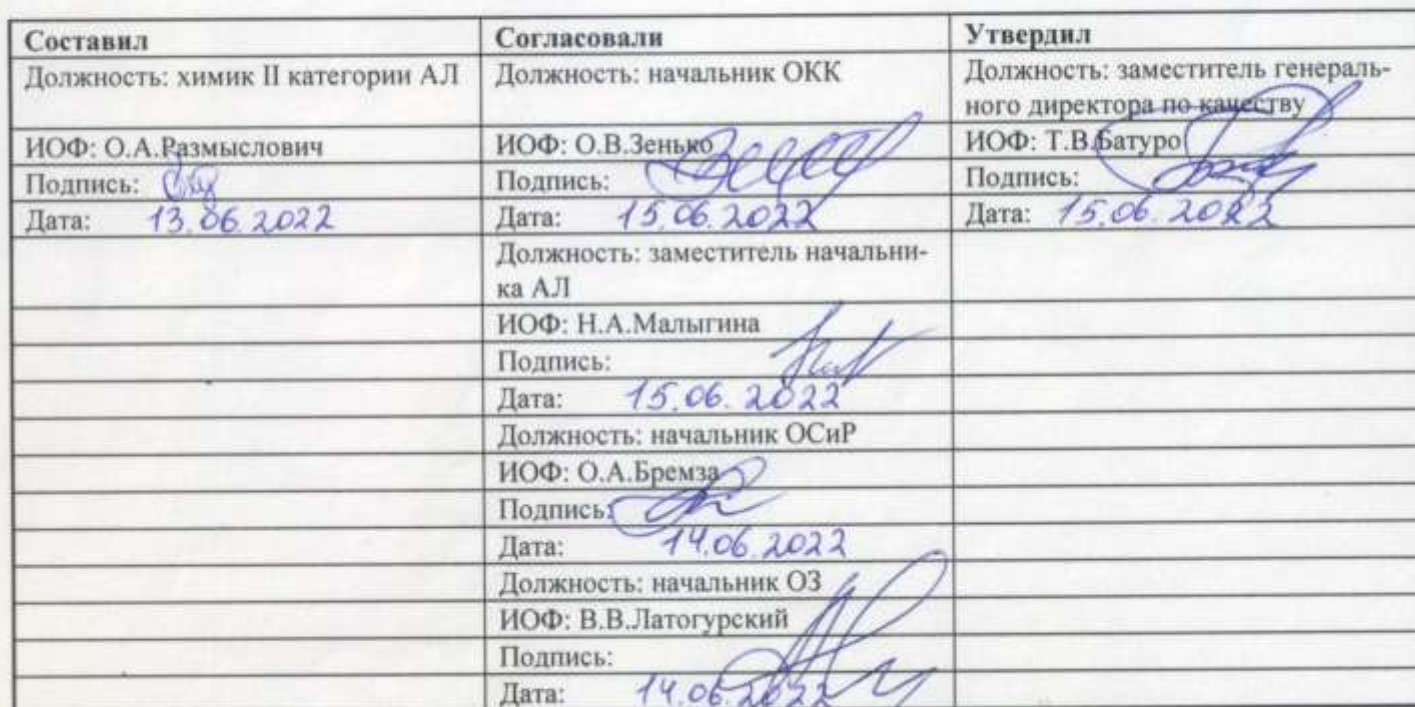 Составил Согласовали Утвердил
Должность: химик II категории АЛ Должность: начальник ОКК Должность: заместитель генераль-
ного директора по качеству
ИОФ: О.А.Размыслович ИОФ: О.В.Зенько ИОФ: Т.В.Батуро
Подпись: Подпись: Подпись:
Дата: 13.06.2022 Дата: 15.06.2022 Дата: 15.06.2022
Должность: заместитель начальни-
ка АЛ
ИОФ: Н.А.Малыгина
Подпись:
Дата: 15.06.2022
Должность: начальник ОСиР
ИОФ: О.А.Бремза
Подпись:
Дата: 14.06.2022
Должность: начальник ОЗ
ИОФ: В.В.Латогурский
Подпись:
Дата: 14.06.2022